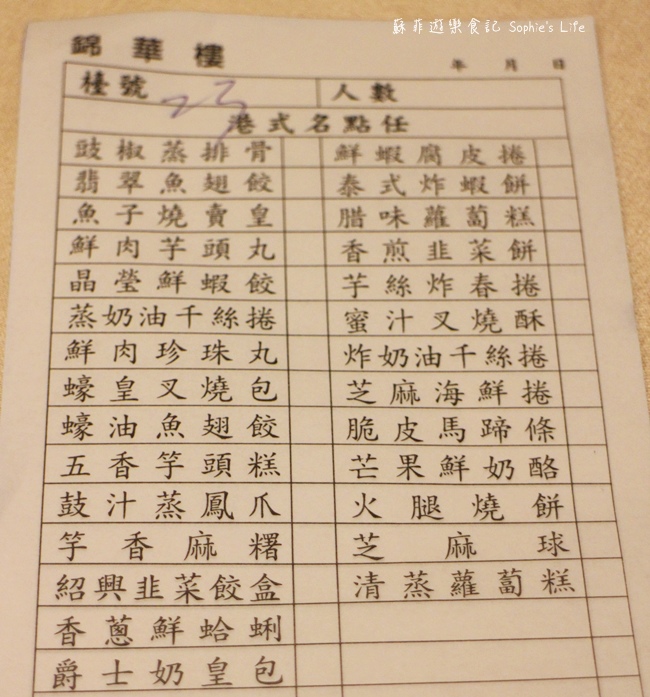 蘇菲遊樂食記 Sophie's Life
錦華樓
年 月 日
檯號 23 人數
港式名點任
豉椒蒸排骨 鮮蝦腐皮捲
翡翠魚翅餃 泰式炸蝦餅
魚子燒賣皇 腊味蘿蔔糕
鮮肉芋頭丸 香煎韭菜餅
晶瑩鮮蝦餃 芋絲炸春捲
蒸奶油千絲捲 蜜汁叉燒酥
鮮肉珍珠丸 炸奶油千絲捲
蠔皇叉燒包 芝麻海鮮捲
蠔油魚翅餃 脆皮馬蹄條
五香芋頭糕 芒果鮮奶酪
鼓汁蒸鳳爪 火腿燒餅
芋香麻糬 芝麻球
紹興韭菜餃盒 清蒸蘿蔔糕
香蔥鮮蛤蜊
爵士奶皇包